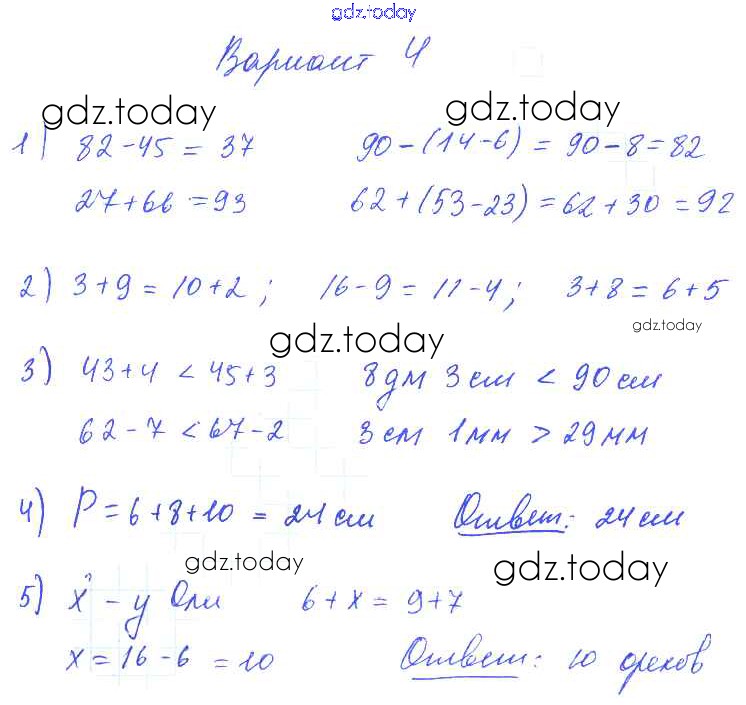 gdz.today
Вариант 4
gdz.today gdz.today
1) 82-45 = 37 90-(14-6) = 90-8=82
27+66=93 62+(53-23)=62+30=92
2) 3+9=10+2; 16-9=11-4; 3+8=6+5
gdz.today
gdz.today
3) 43+4<45+3 8дм 3см < 90см
62-7<67-2 3см 1мм > 29мм
4) P=6+8+10=24см Ответ: 24см
gdz.today gdz.today
5) x - у Оли 6+x=9+7
x=16-6=10 Ответ: 10 орехов